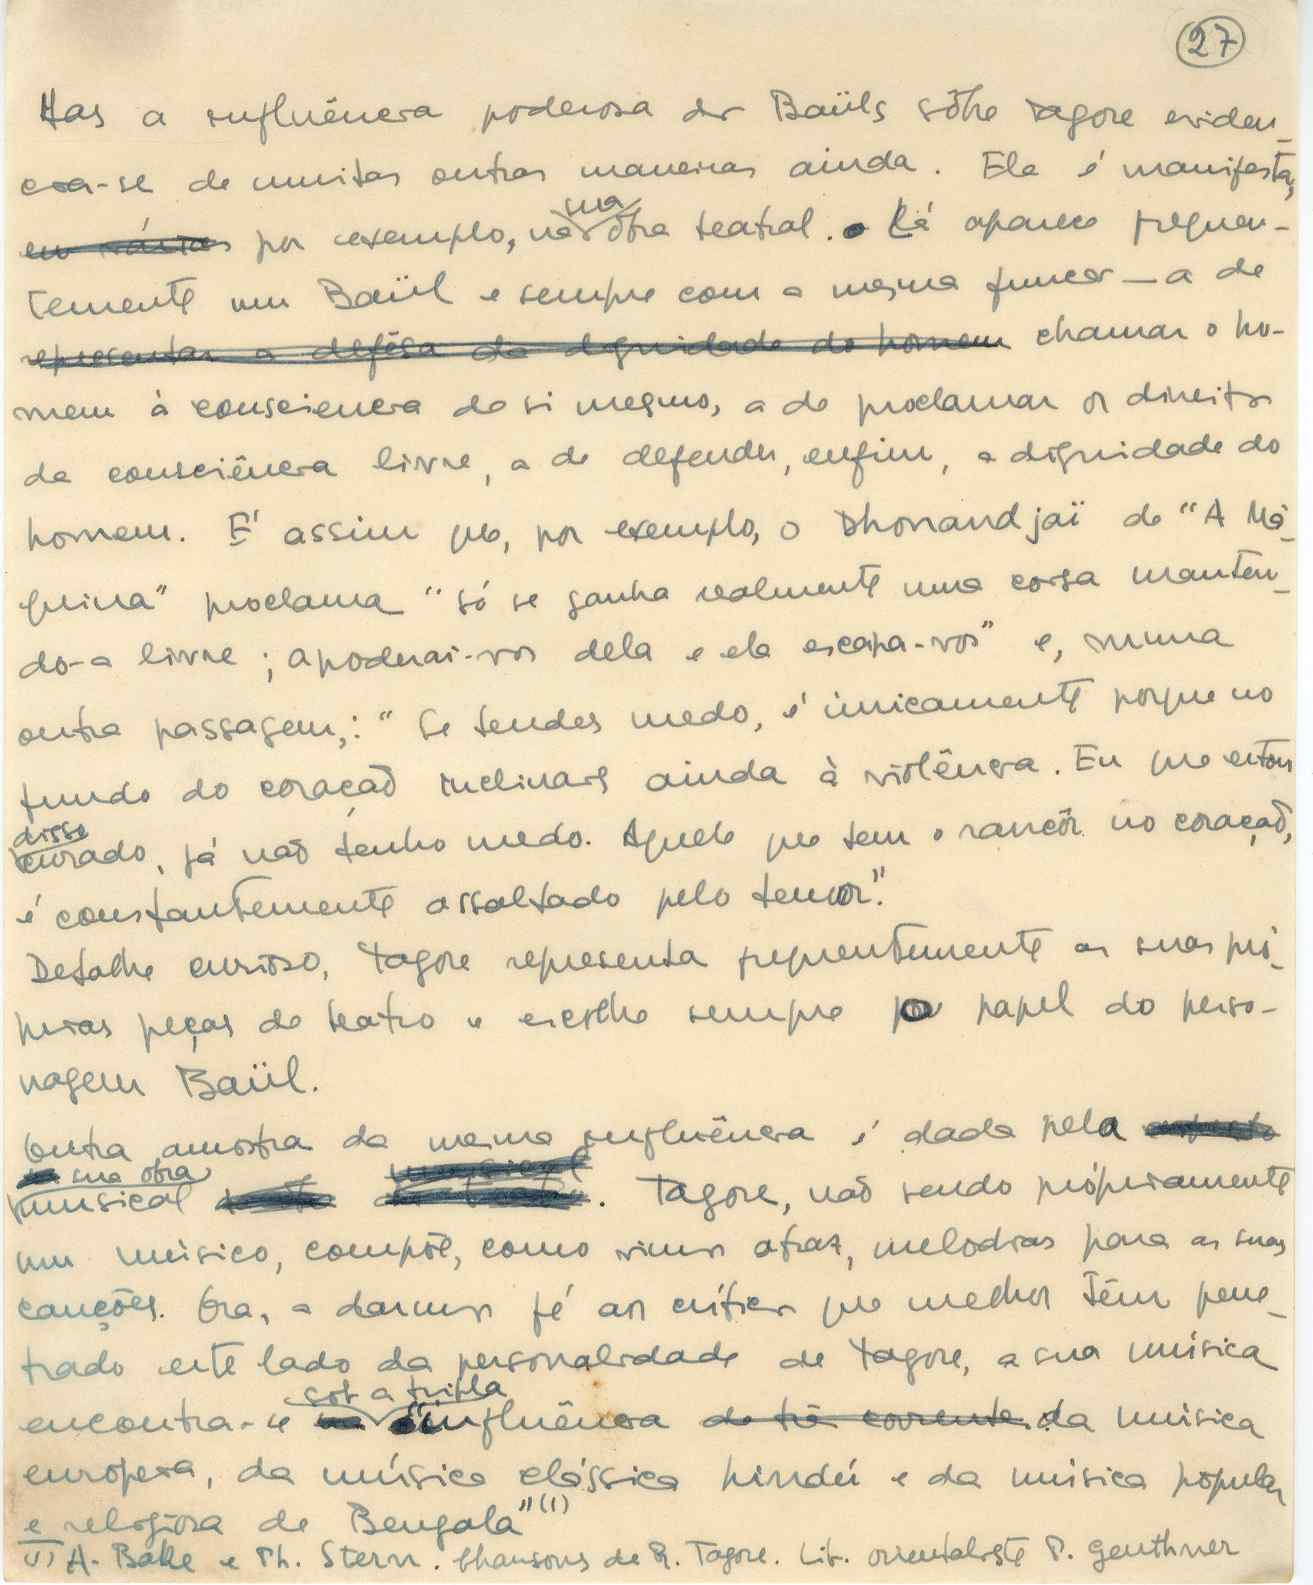 27
Mas a influência poderosa dos Baüls sôbre Tagore eviden-
cia-se de muitas outras maneiras ainda. Ela é manifesta,
em várias por exemplo, na sua obra teatral. Lá aparece frequen-
temente um Baül e sempre com a mesma funcao — a de
representar a defêsa da dignidade do homem chamar o ho-
mem à consciencia de si mesmo, a de proclamar os direitos
da consciência livre, a de defender, enfim, a dignidade do
homem. E' assim que, por exemplo, o Dhonandjaï de "A Má-
quina" proclama "só se ganha realmente uma coisa manten-
do-a livre; apoderai-vos dela e ela escapa-vos" e, numa
outra passagem,: "Se tendes medo, é ùnicamente porque no
fundo do coração inclinais ainda à violência. Eu que estou
disso
curado, já não tenho medo. Aquele que tem o rancôr no coração,
é constantemente assaltado pelo temor".
Detalhe curioso, Tagore representa frequentemente as suas pró-
prias peças de teatro e escolhe sempre o papel do perso-
nagem Baül.
Outra amostra da mesma influência é dada pela
sua obra musical
musical. Tagore, não sendo pròpriamente
um músico, compõe, como vimos atraz, melodias para as suas
canções. Ora, a darmos fé aos críticos que melhor têm pene-
trado este lado da personalidade de Tagore, a sua música
sob a tripla
encontra-se na "influência de três correntes da música
europeia, da música clássica hindú e da música popular
e religiosa de Bengala" (1)
(1) A. Bake e Ph. Stern. Chansons de R. Tagore. Lib. orientaliste P. Geuthner